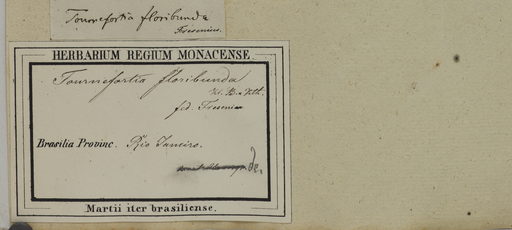 Tournefortia floribunda
Fresenius.
HERBARIUM REGIUM MONACENSE.
Tournefortia floribunda
H. B. & Kth.
fid. Fresenius
Brasilia Provinc. Rio Janeiro.
Martii iter brasiliense.